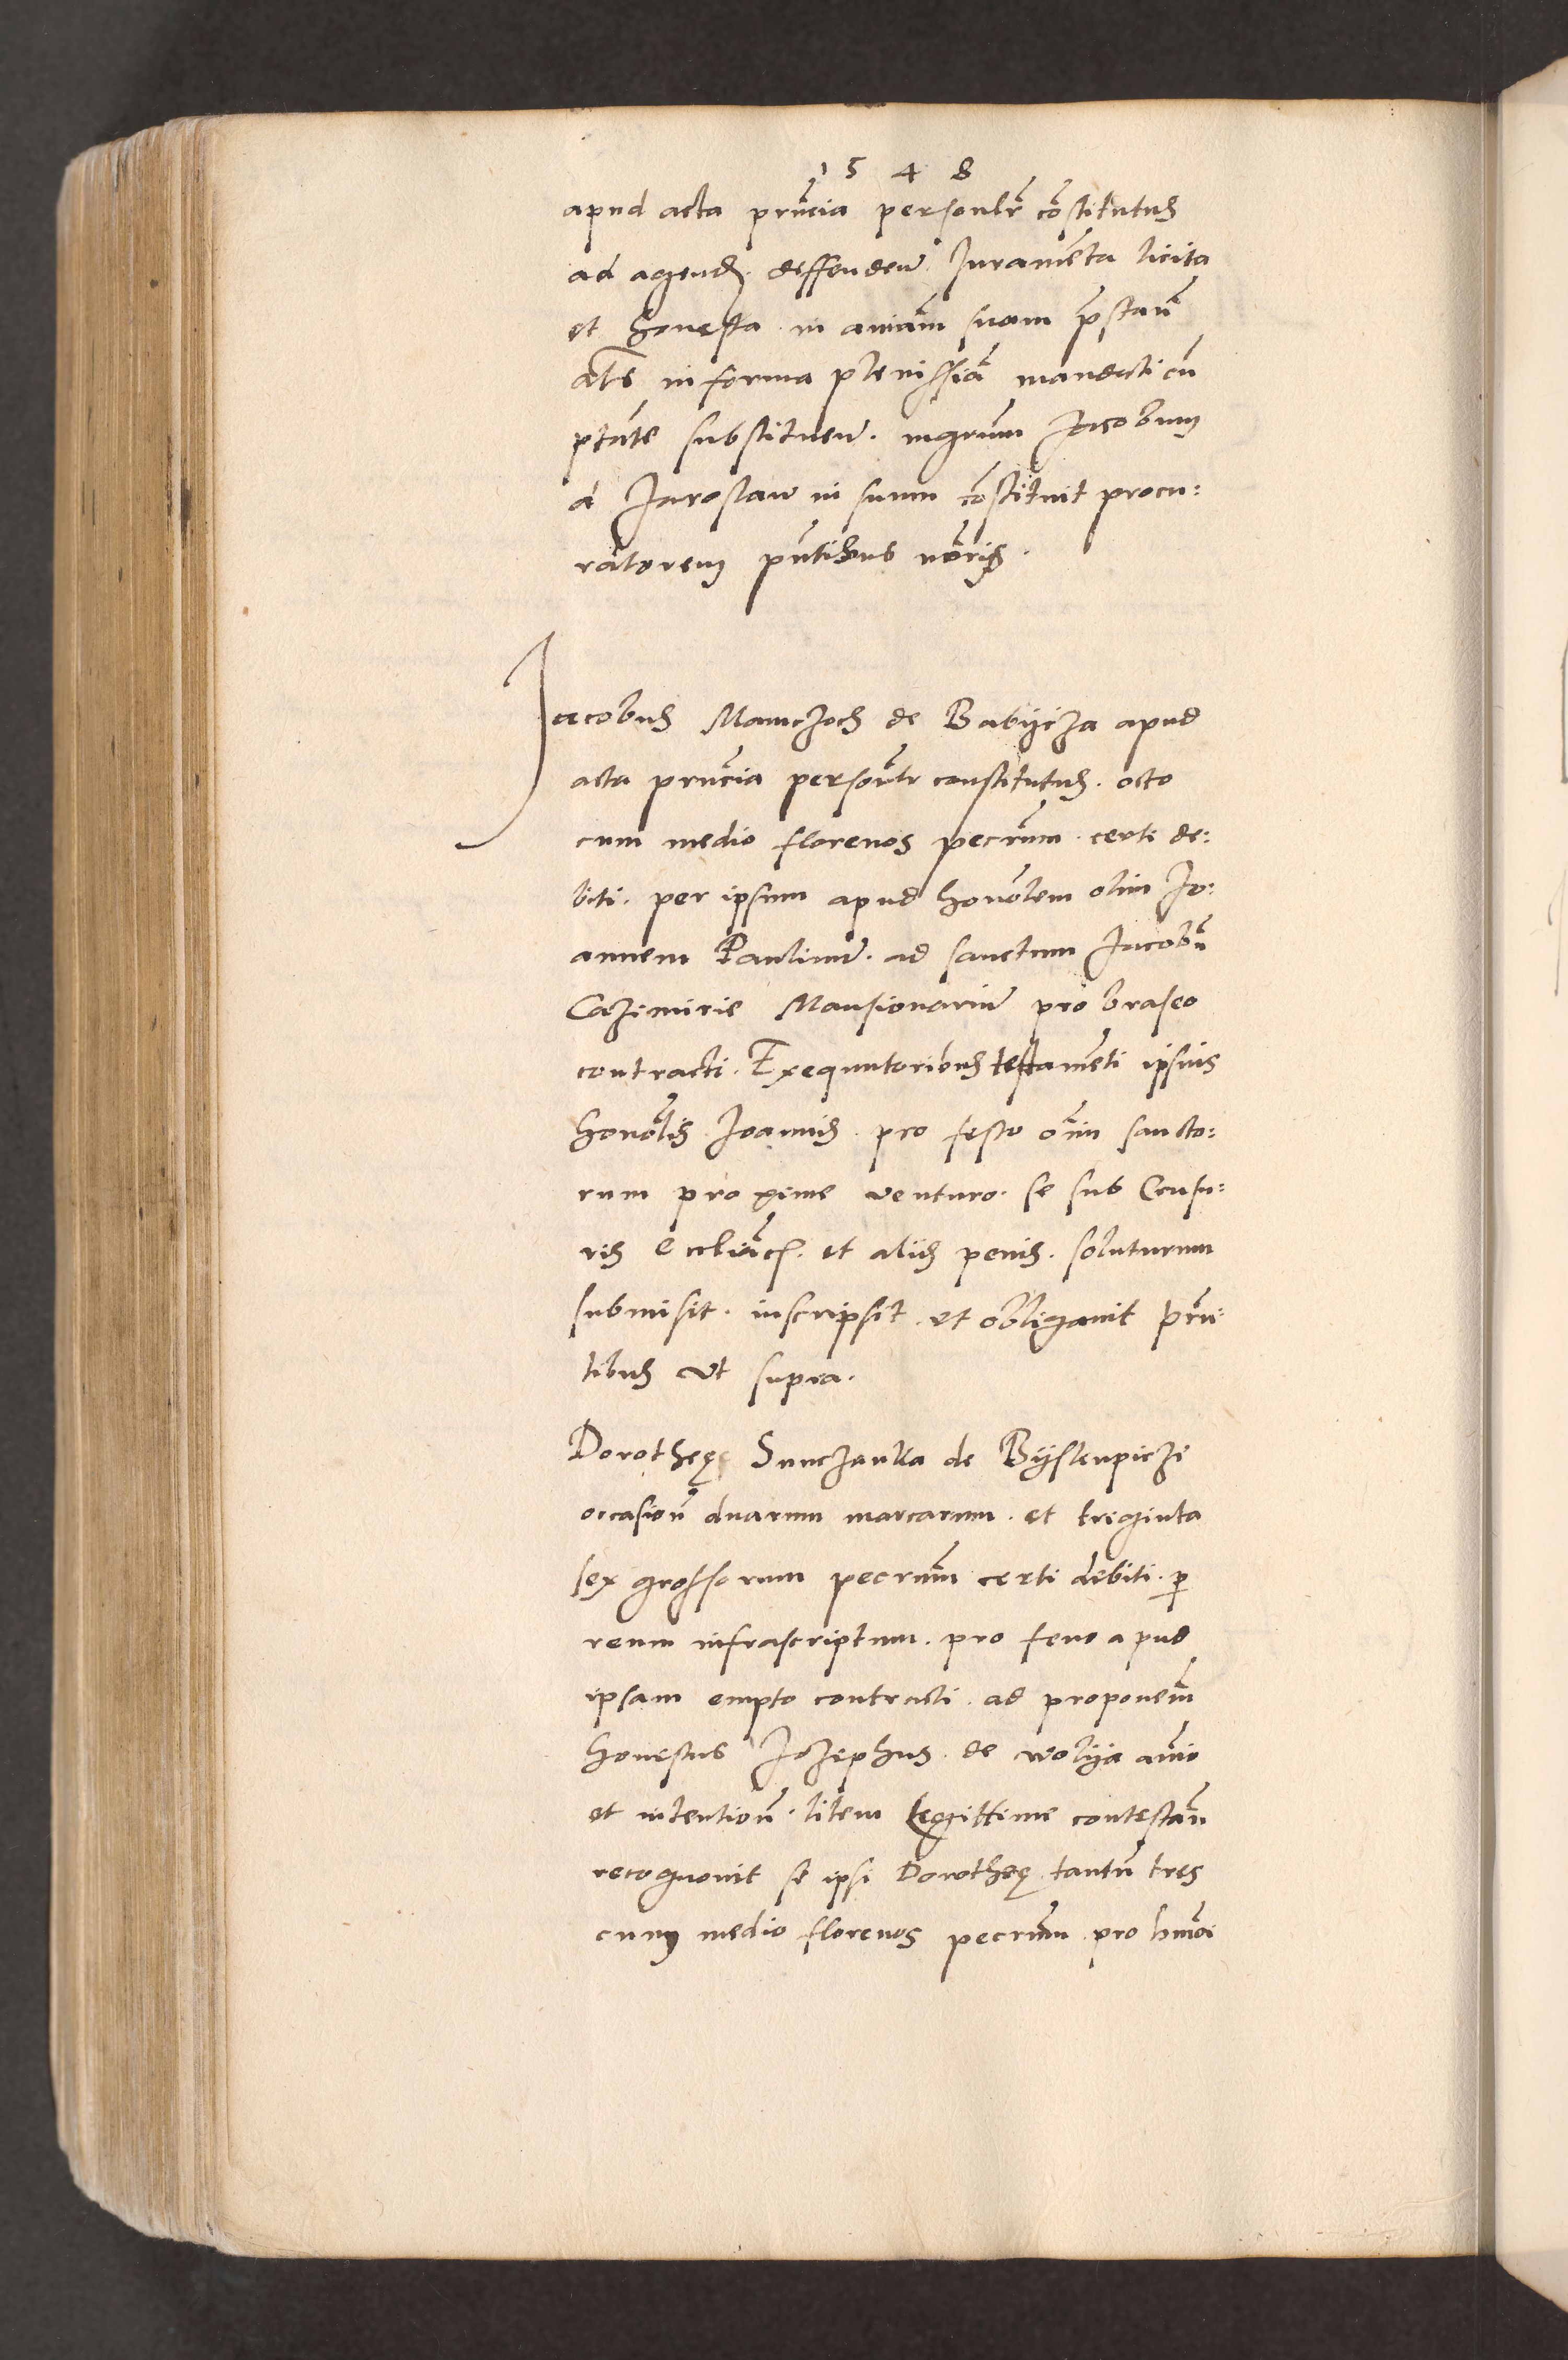 1 5 4 8
apud acta pr̃ncia personlr̃ cõstitutus
ad agend. deffenden̄ Juramẽta licita
et honesta in aniãm suam p̃stan̄
als̄ in forma plenissiã mandati cũ
ptãte substituen̄. mgrũm Jacobum
a Jaroslaw in suum cõstituit procu:
ratorem pñtibus nõrijs.
Jacobus Mamczoch de Babycza apud
acta prñcia persõntr constitutus. octo
cum medio florenos pecrũm. certi de:
biti. per ipsum apud honõlem olim Jo:
annem Paulinũ. ad sanctum Jacobũ
Cazimirie Mansionariũ pro braseo
contracti. Exequutoribus testamẽti ipsius
honõlis Joannis. pro festo oĩm sancto:
rum proxime venturo. se sub Censu:
ris eccliãcs. et alijs penis. soluturum
submisit. inscripsit. et obligavit prñ:
tibus ut supra.
Dorotheę Sunczanka de Byskupicze
occasioñ duarum marcarum. et triginta
sex grossorum pecrũm certi debiti. p
reum infrascriptum. pro feno apud
ipsam empto contracti. ad proponem̃
honestus Jozephus. de Wolya aĩo
et intentioñ. litem legittime contestañ
recognovit se ipsi Dorotheę tantũ tres
cum medio florenos pecrũm pro hmõi